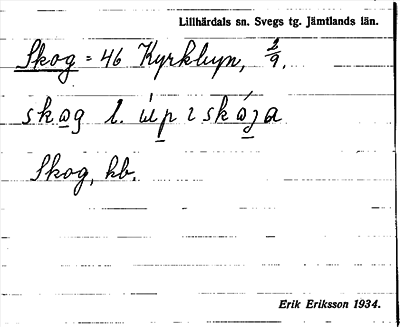 Lillhärdals sn. Svegs tg. Jämtlands län.
Skog = 46 Kyrkbyn, 2/9.
skag l. úp i skaga
Skog, kb.
Erik Eriksson 1934.